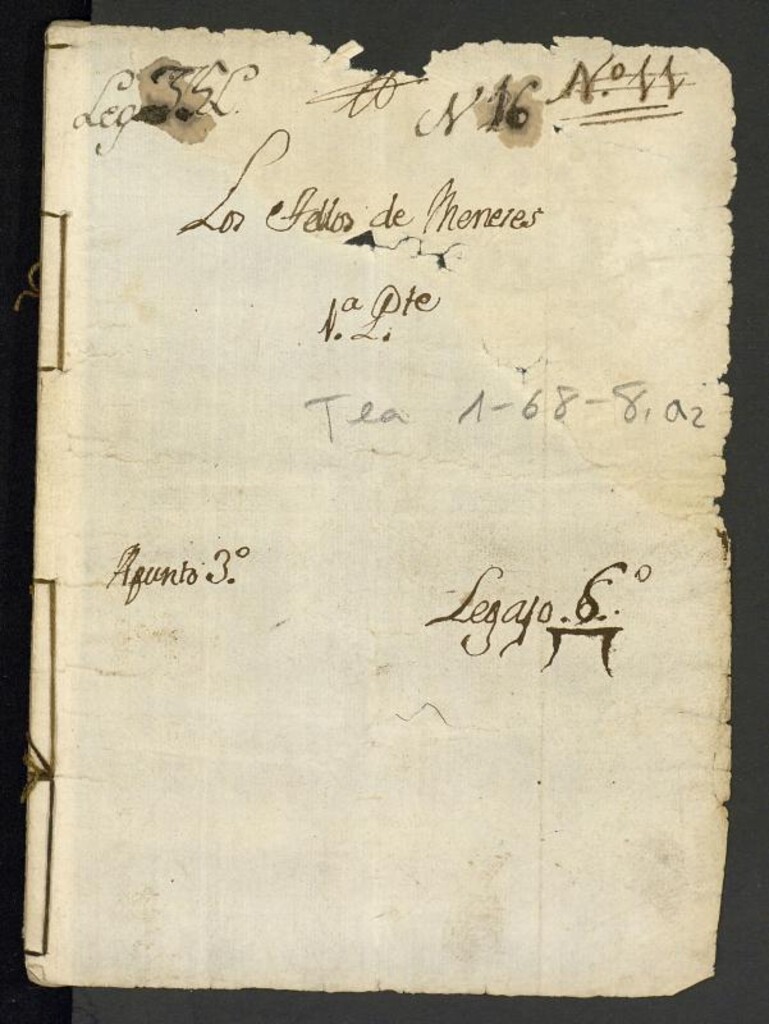 Leg.
N 16 N.º 11
Los Tellos de Meneses
1.ª Pte
N. L.
Tea 1-68-8, a2
Apunto 3.º
Legajo. 6.º